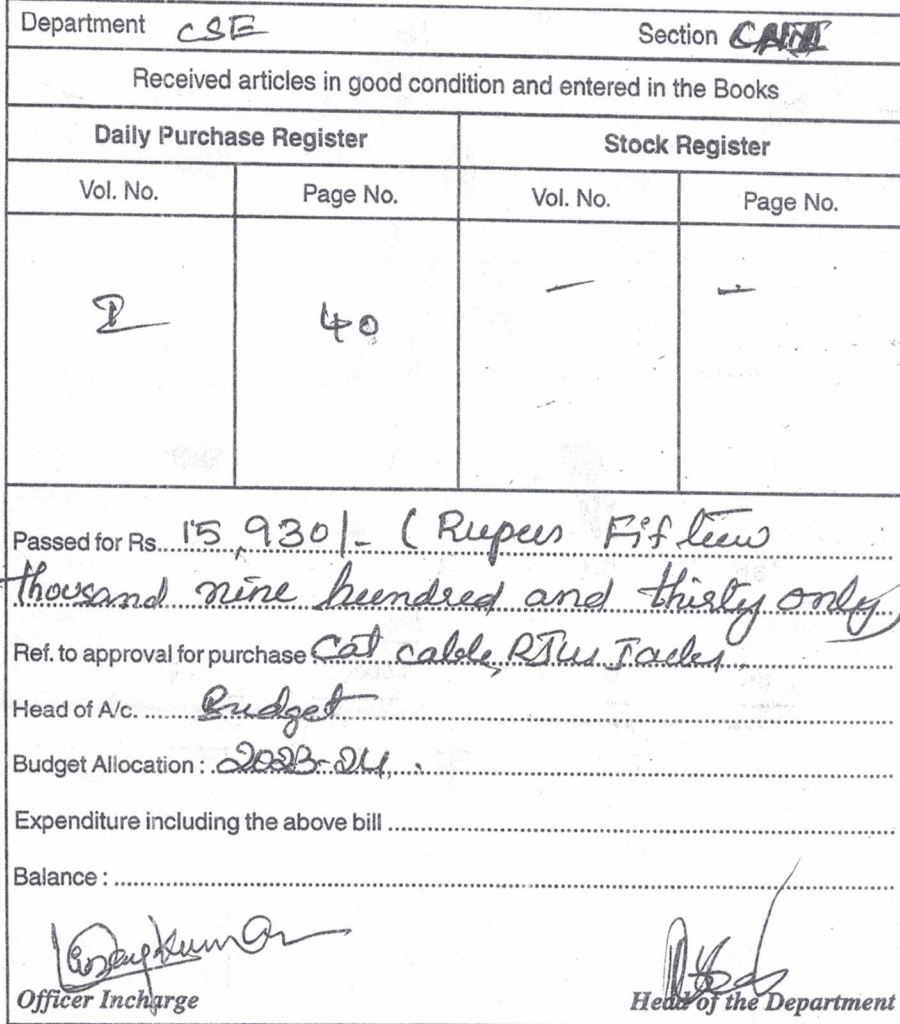 Department CSE Section
Received articles in good condition and entered in the Books
Daily Purchase Register Stock Register
Vol. No. Page No. Vol. No. Page No.
I 40 – –
Passed for Rs. 15,930/- (Rupees Fifteen
thousand nine hundred and thirty only
Ref. to approval for purchase Cat cable, Jacks.
Head of A/c. Budget
Budget Allocation : 2023-24.
Expenditure including the above bill
Balance :
Officer Incharge Head of the Department